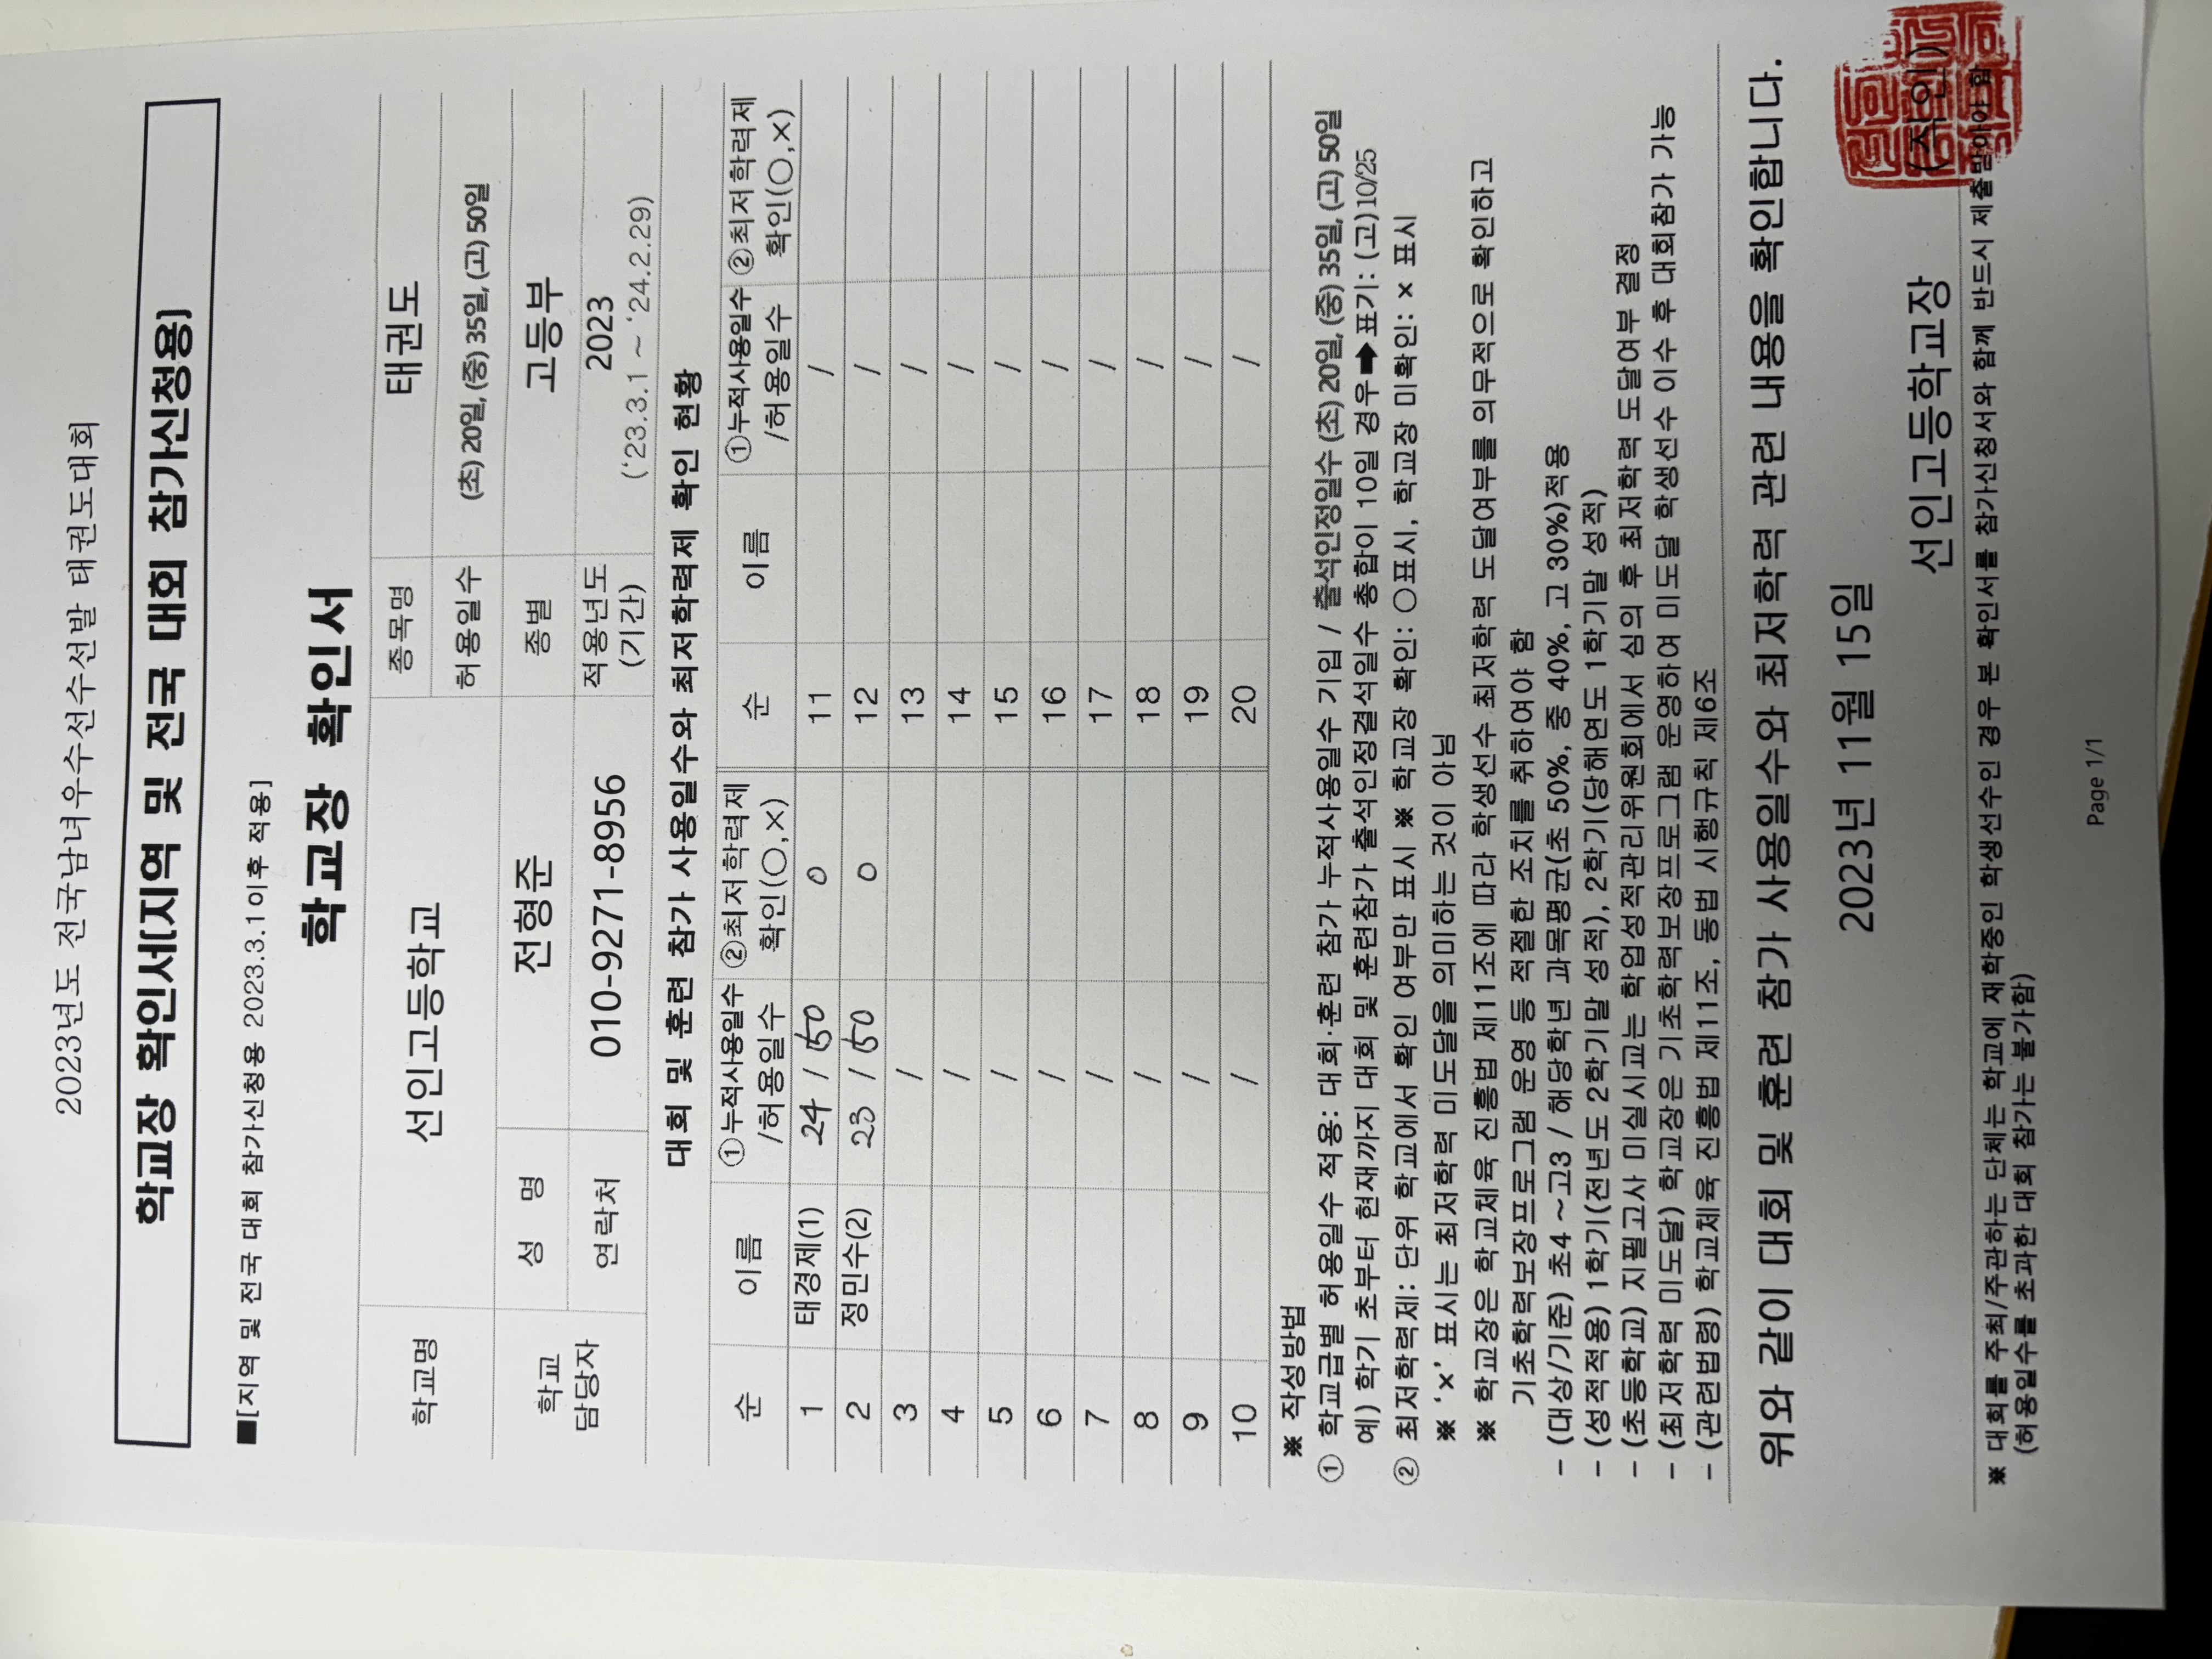 2023년도 전국남녀우수선수선발 태권도대회
학교장 확인서[지역 및 전국 대회 참가신청용]
■[지역 및 전국 대회 참가신청용 2023.3.1이후 적용]
학교장 확인서
학교명 선인고등학교 종목명 태권도
허용일수 (초) 20일, (중) 35일, (고) 50일
학교 담당자 성 명 전형준 종별 고등부
연락처 010-9271-8956 적용년도 (기간) 2023 ('23.3.1 ~ '24.2.29)
대회 및 훈련 참가 사용일수와 최저학력제 확인 현황
순 이름 ①누적사용일수 /허용일수 ②최저학력제 확인(○,×) 순 이름 ①누적사용일수 /허용일수 ②최저학력제 확인(○,×)
1 태경제(1) 24 / 50 0 11 /
2 정민수(2) 23 / 50 0 12 /
3 / 13 /
4 / 14 /
5 / 15 /
6 / 16 /
7 / 17 /
8 / 18 /
9 / 19 /
10 / 20 /
※ 작성방법
① 학교급별 허용일수 적용: 대회·훈련 참가 누적사용일수 기입 / 출석인정일수 (초) 20일, (중) 35일, (고) 50일
예) 학기 초부터 현재까지 대회 및 훈련참가 출석인정결석일수 총합이 10일 경우 ➡ 표기: (고) 10/25
② 최저학력제: 단위 학교에서 확인 여부만 표시 ※ 학교장 확인: ○표시, 학교장 미확인: × 표시
※ '×' 표시는 최저학력 미도달을 의미하는 것이 아님
※ 학교장은 학교체육 진흥법 제11조에 따라 학생선수 최저학력 도달여부를 의무적으로 확인하고
기초학력보장프로그램 운영 등 적절한 조치를 취하여야 함
- (대상/기준) 초4 ~고3 / 해당학년 과목평균(초 50%, 중 40%, 고 30%)적용
- (성적적용) 1학기(전년도 2학기말 성적), 2학기(당해연도 1학기말 성적)
- (초등학교) 지필고사 미실시교는 학업성적관리위원회에서 심의 후 최저학력 도달여부 결정
- (최저학력 미도달) 학교장은 기초학력보장프로그램 운영하여 미도달 학생선수 이수 후 대회참가 가능
- (관련법령) 학교체육 진흥법 제11조, 동법 시행규칙 제6조
위와 같이 대회 및 훈련 참가 사용일수와 최저학력 관련 내용을 확인합니다.
2023년 11월 15일
선인고등학교장 (직인)
※ 대회를 주최/주관하는 단체는 학교에 재학중인 학생선수인 경우 본 확인서를 참가신청서와 함께 반드시 제출받아야 함
(허용일수를 초과한 대회 참가는 불가함)
Page 1/1